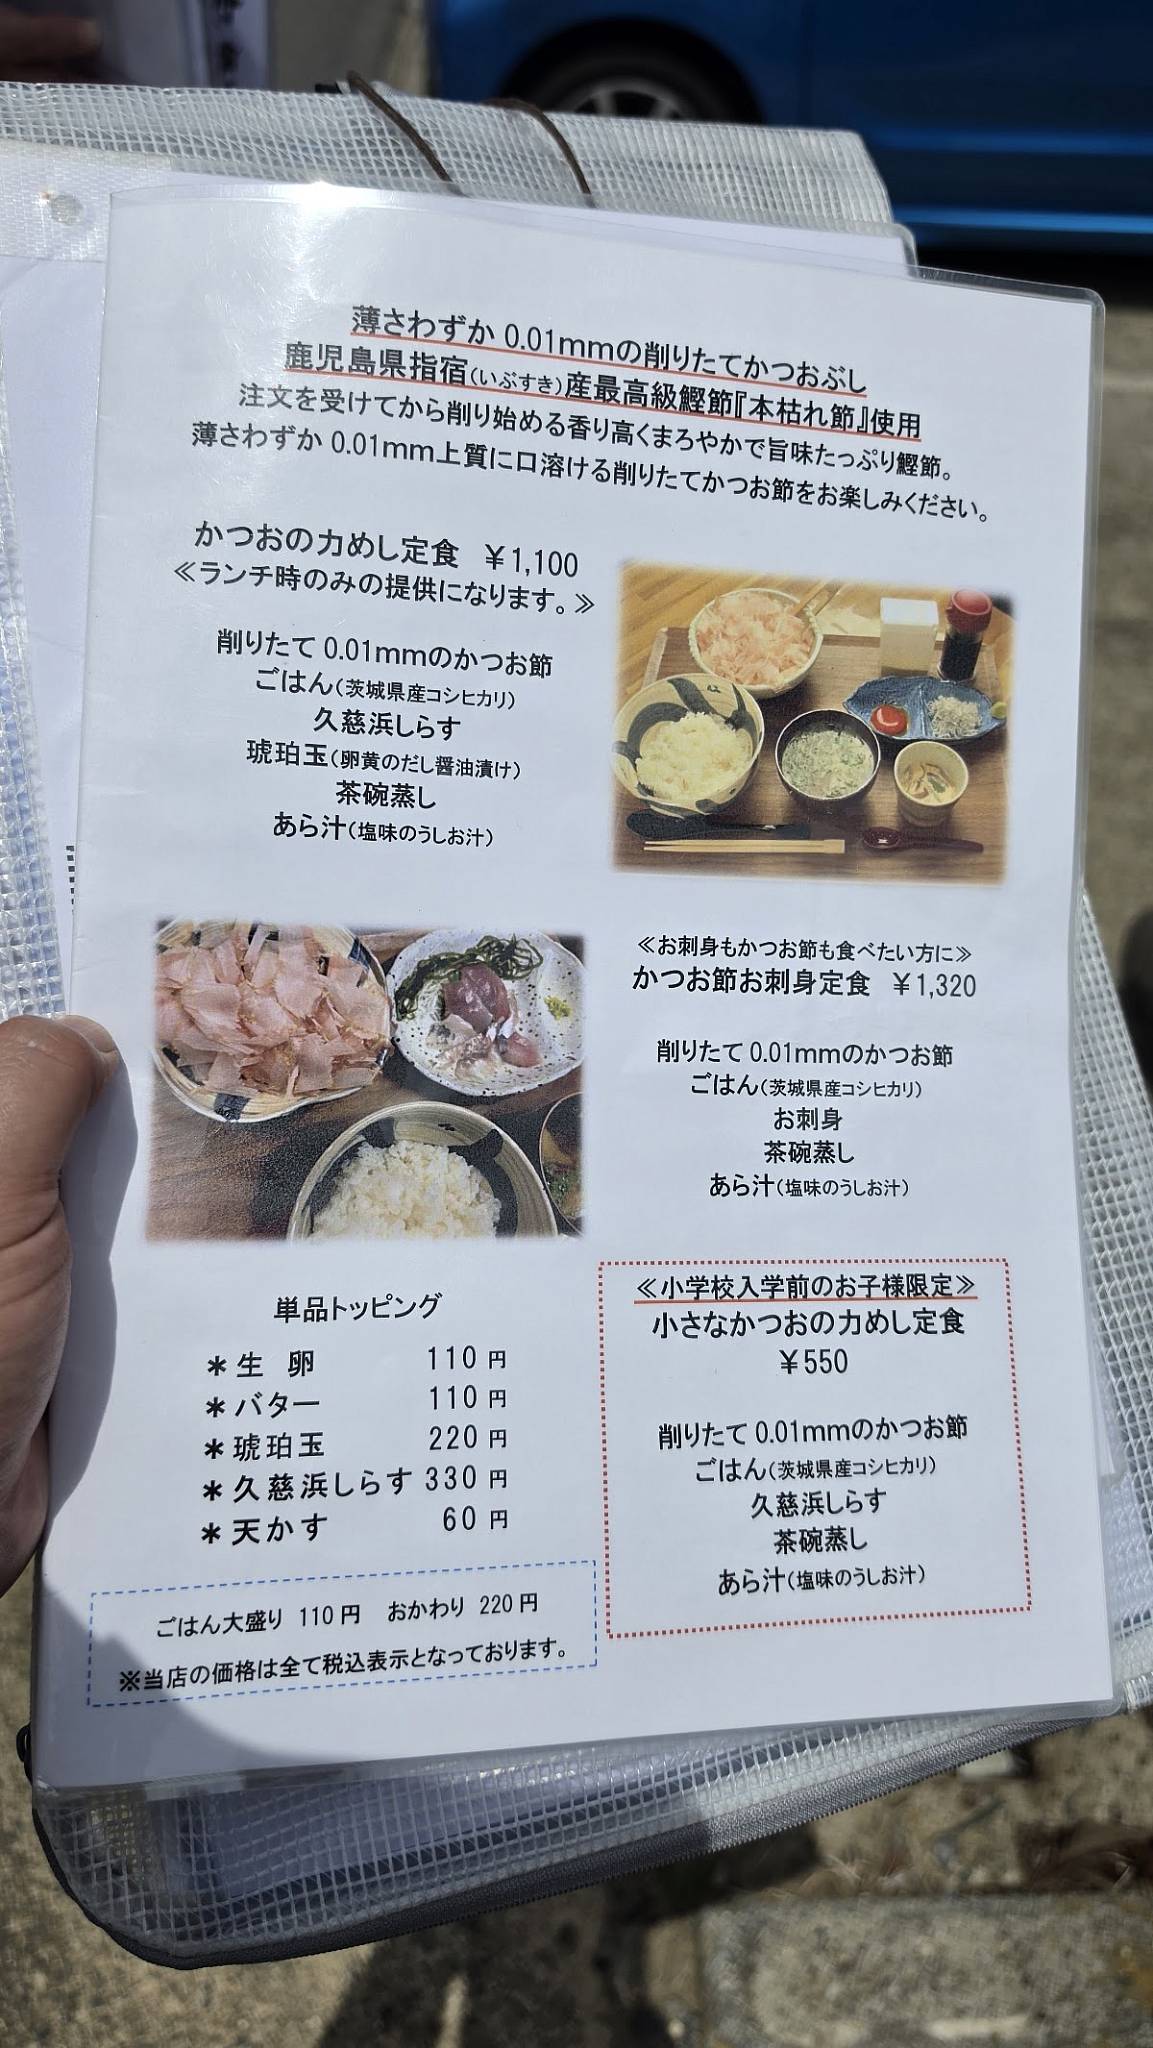 薄さわずか0.01mmの削りたてかつおぶし
鹿児島県指宿(いぶすき)産最高級鰹節『本枯れ節』使用
注文を受けてから削り始める香り高くまろやかで旨味たっぷり鰹節。
薄さわずか0.01mm上質に口溶ける削りたてかつお節をお楽しみください。
かつおの力めし定食 ¥1,100
≪ランチ時のみの提供になります。≫
削りたて0.01mmのかつお節
ごはん(茨城県産コシヒカリ)
久慈浜しらす
琥珀玉(卵黄のだし醤油漬け)
茶碗蒸し
あら汁(塩味のうしお汁)
≪お刺身もかつお節も食べたい方に≫
かつお節お刺身定食 ¥1,320
削りたて0.01mmのかつお節
ごはん(茨城県産コシヒカリ)
お刺身
茶碗蒸し
あら汁(塩味のうしお汁)
単品トッピング
＊生 卵 110円
＊バター 110円
＊琥珀玉 220円
＊久慈浜しらす 330円
＊天かす 60円
ごはん大盛り 110円 おかわり 220円
※当店の価格は全て税込表示となっております。
≪小学校入学前のお子様限定≫
小さなかつおの力めし定食
¥550
削りたて0.01mmのかつお節
ごはん(茨城県産コシヒカリ)
久慈浜しらす
茶碗蒸し
あら汁(塩味のうしお汁)